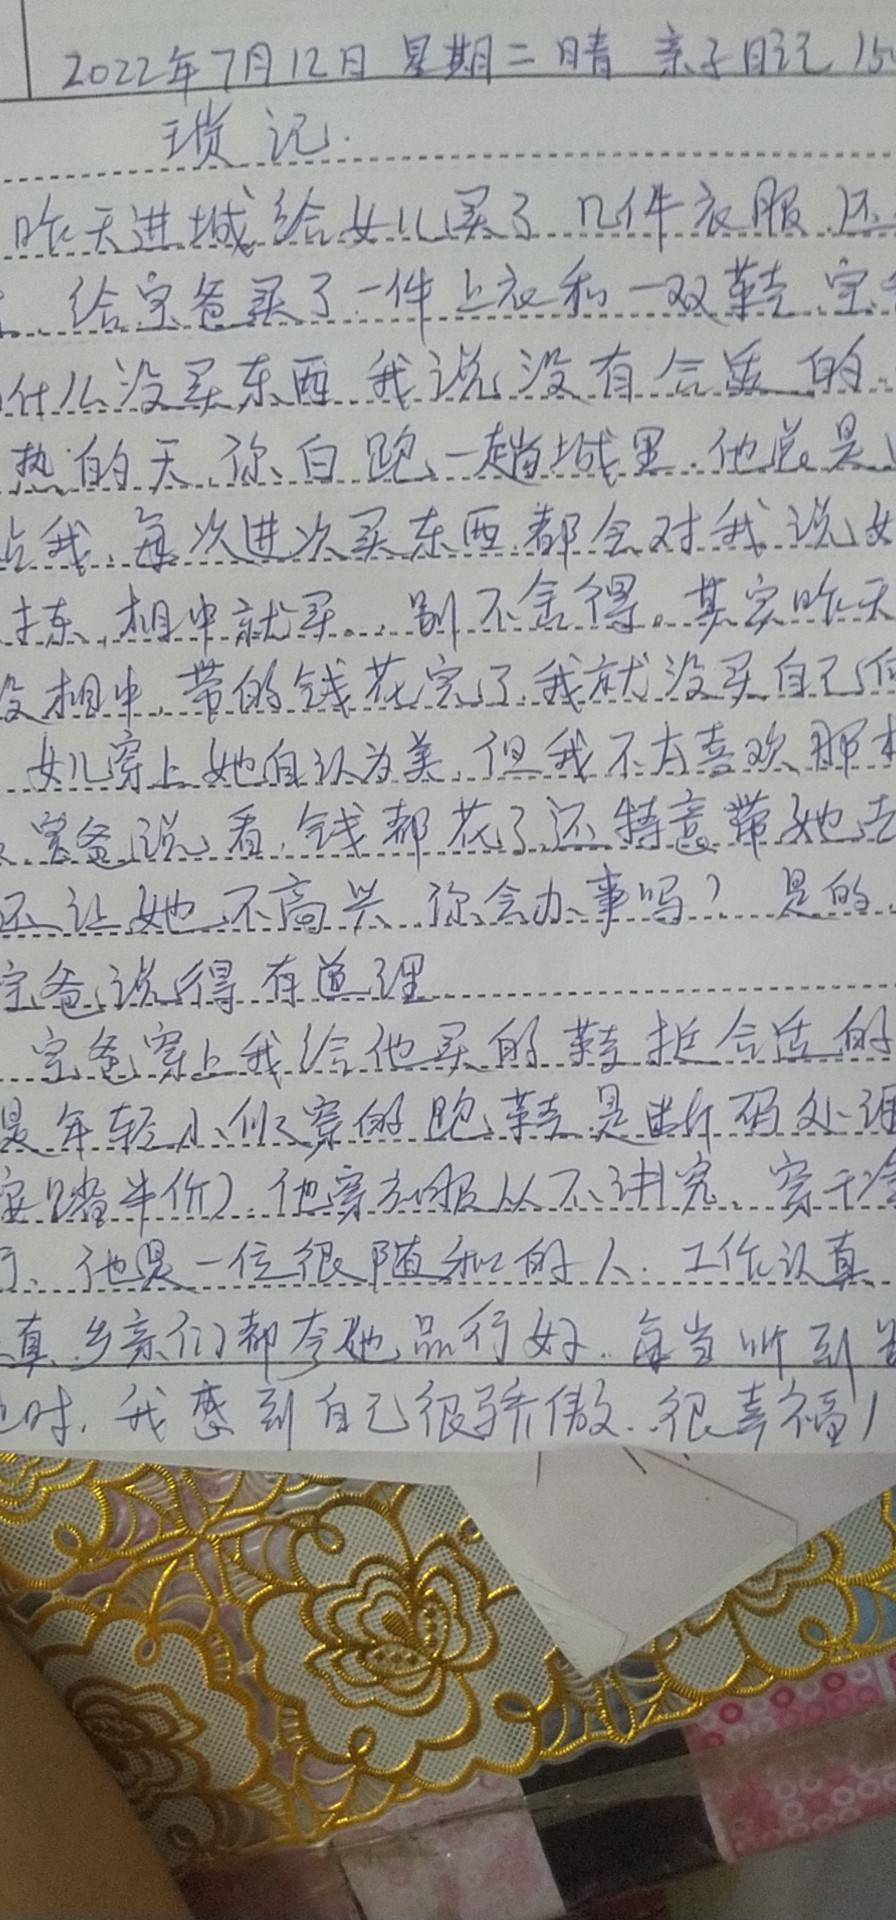 2022年7月12日 星期二 晴 亲子日记 15
琐记.
昨天进城给女儿买了几件衣服,还
给宝爸买了一件上衣和一双鞋,宝
什么没买东西,我说没有合适的.
热的天,你白跑一趟城里.他总是
点我,每次进次买东西,都会对我说女
拣,相中就买..,别不舍得。其实昨天
没相中,带的钱花完了,我就没买自己的
女儿穿上她自认为美,但我不太喜欢那
宝爸说,看,钱都花了,还特意带她去
还让她不高兴,你会办事吗? 是的
宝爸说得有道理
宝爸穿上我给他买的鞋挺合适的
是年轻小伙穿的跑鞋,是断码处理
半价).他穿衣服从不讲究,穿干净
行、他是一位很随和的人.工作认真
真,乡亲们都夸她品行好..每当听到
时,我感到自己很骄傲.很幸福!